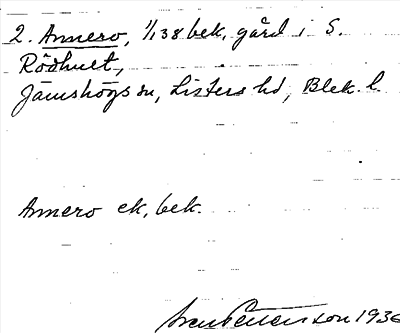 2. Annero, 1/138 bek, gård i S.
Rödhult,
Jämshögs sn, Listers hd, Blek. l.
Annero ek, bek.
Sven Benson 1936